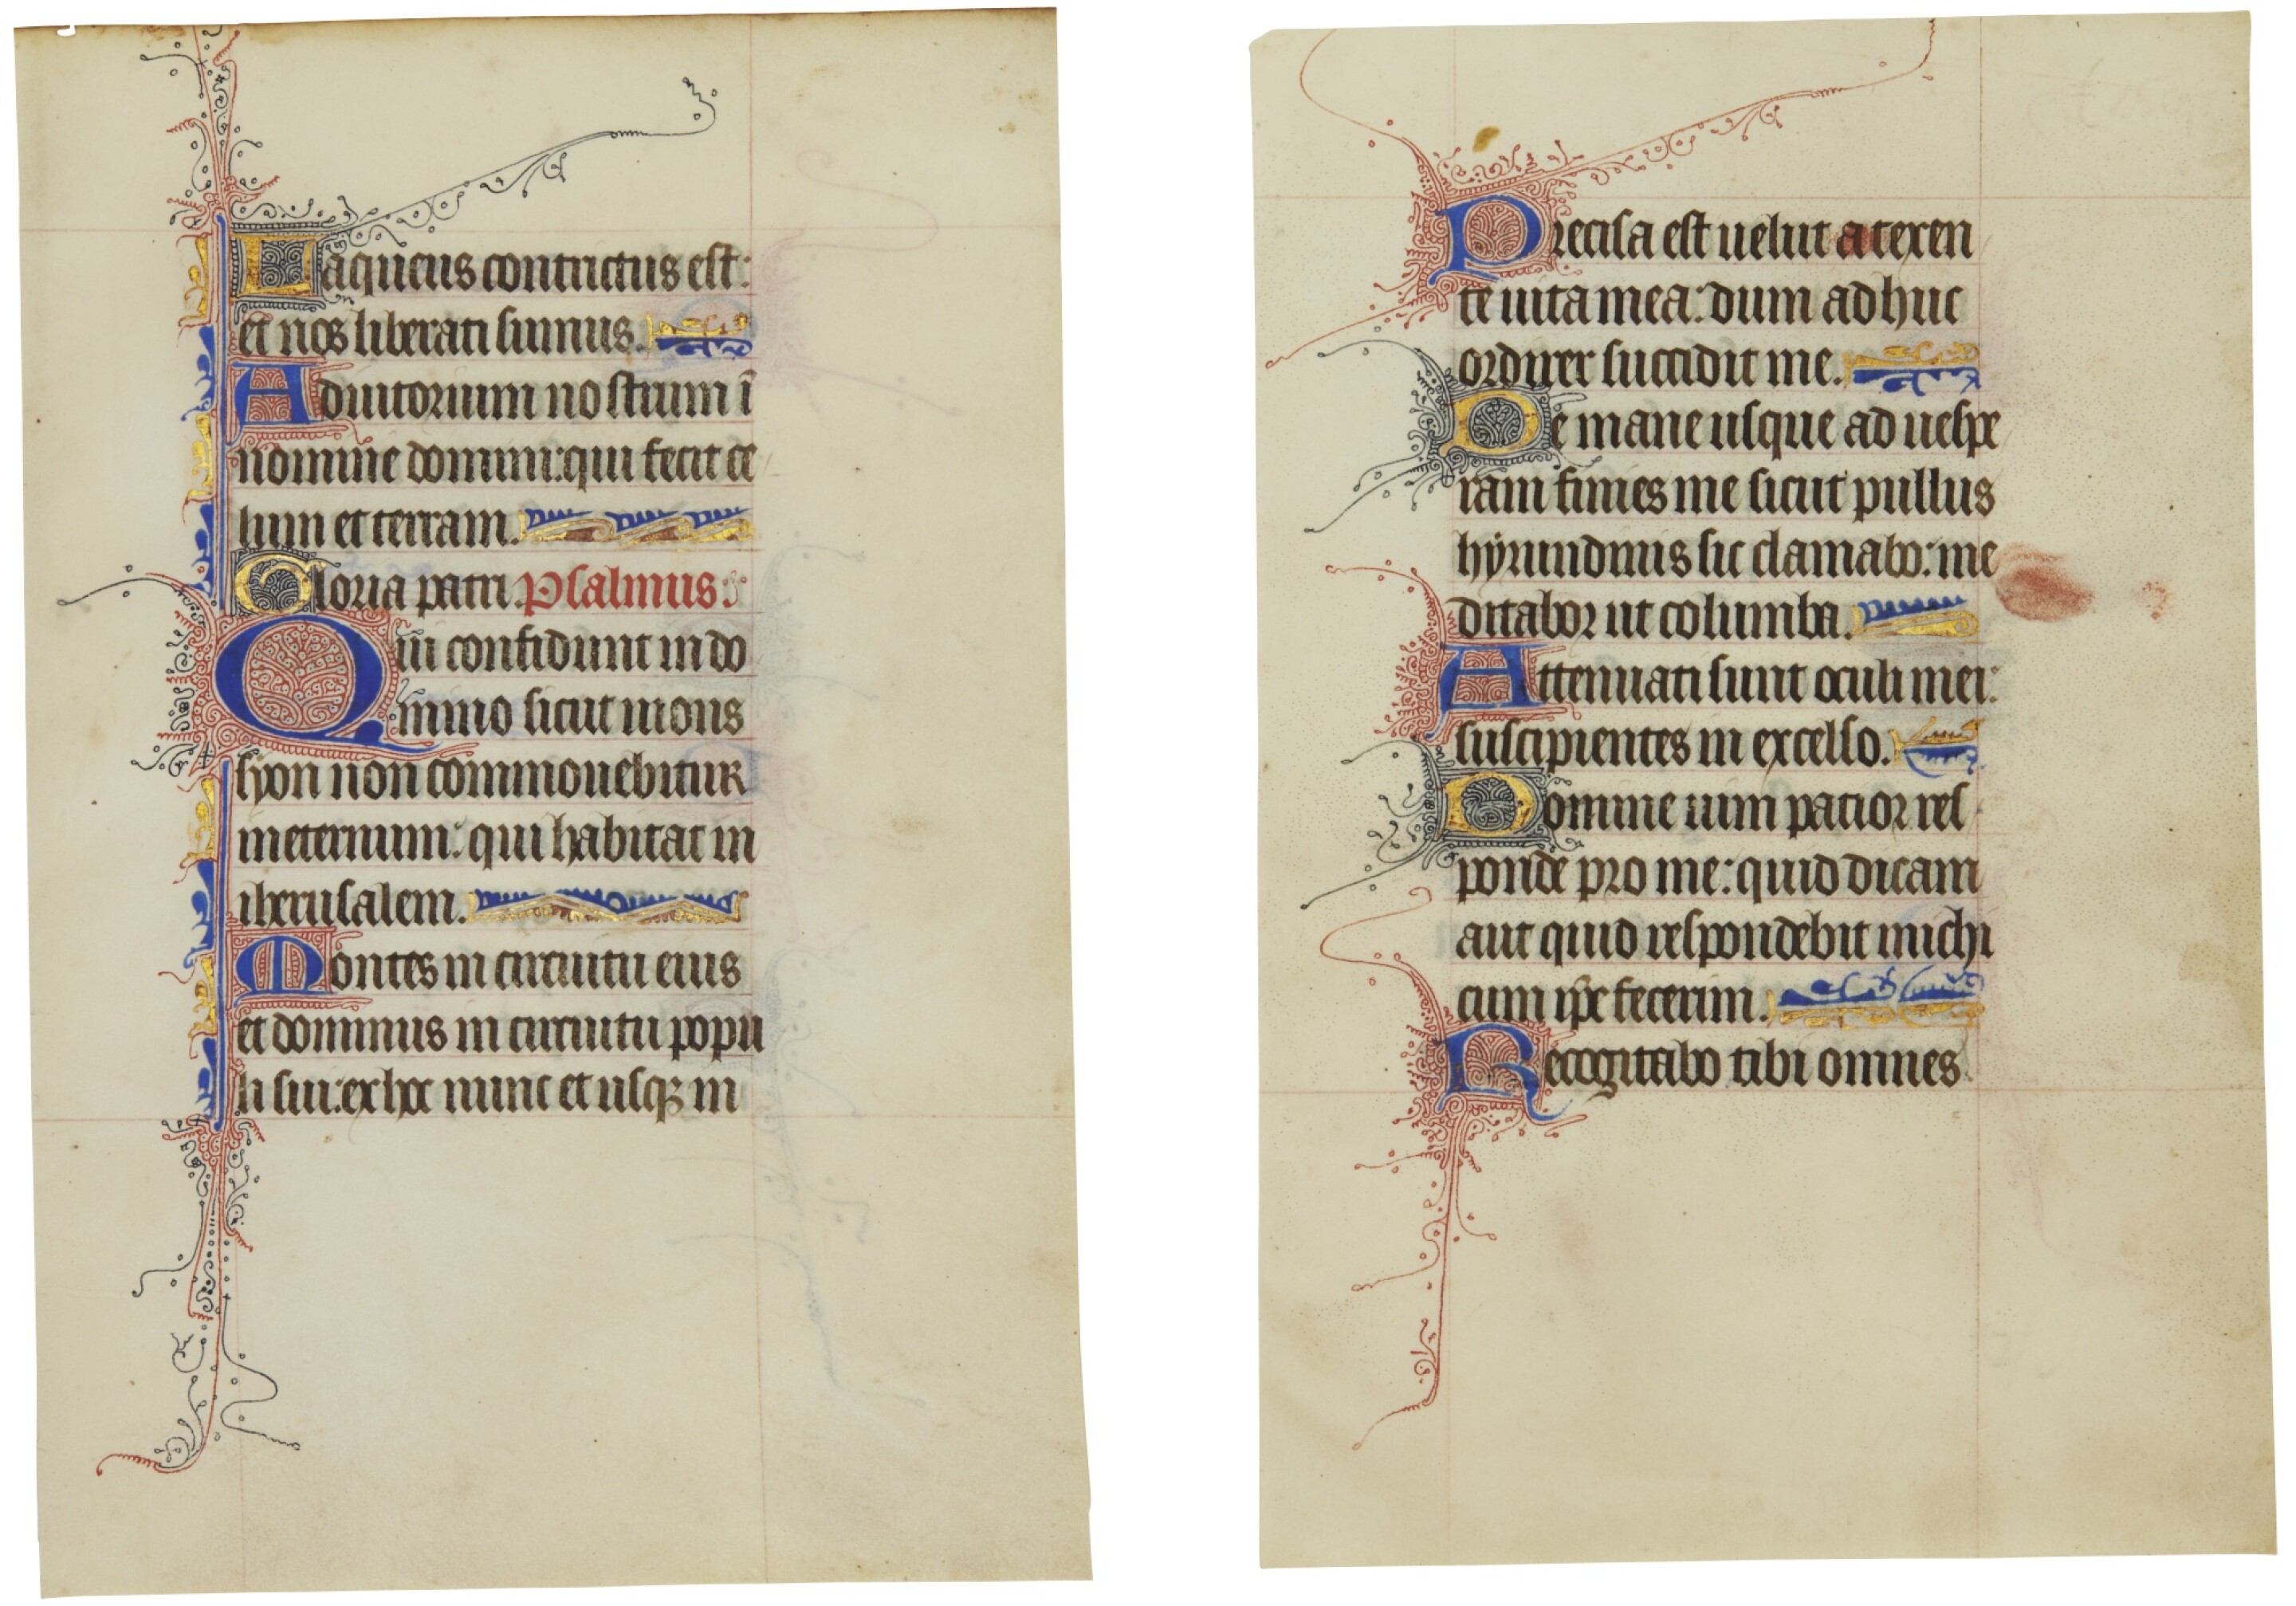 Laqueus contritus est:
et nos liberati sumus.
Adiutorium nostrum ī
nomine domini: qui fecit ce
lum et terram.
Gloria patri. Psalmus:
Qui confidunt in do
mino sicut mons
syon non commouebitur
ineternum: qui habitat in
iherusalem.
Montes in circuitu eius
et dominus in circuitu popu
li sui: ex hoc nunc et usqꝫ in
Precisa est uelut a texen
te uita mea: dum adhuc
ordirer succidit me.
De mane usque ad uespe
ram finies me sicut pullus
hyrundinis sic clamabo: me
ditabor ut columba.
Attenuati sunt oculi mei:
suscipientes in excelso.
Domine uim patior res
ponde pro me: quid dicam
aut quid respondebit michi
cum ip̄e fecerim.
Recogitabo tibi omnes